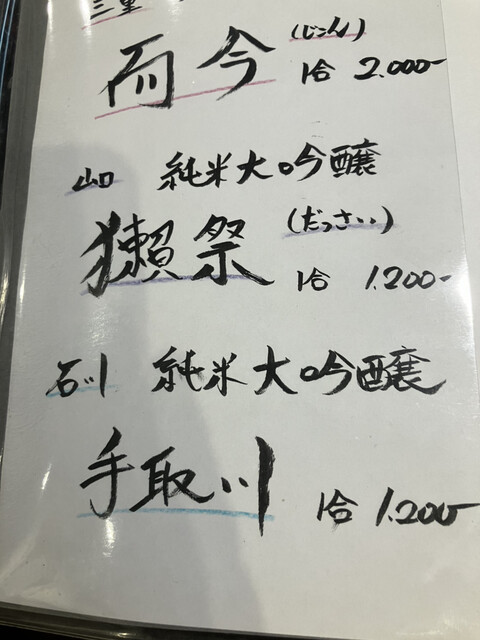 三重
而今 (じこん) 1合 2.000-
山口 純米大吟醸
獺祭 (だっさい) 1合 1.200-
石川 純米大吟醸
手取川 1合 1.200-